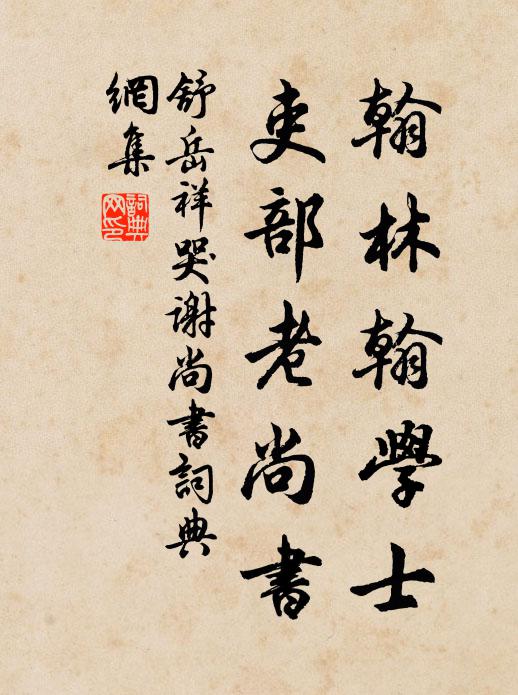 翰林翰學士
吏部老尚書
舒岳祥哭謝尚書詞典
網集
詞典
网印